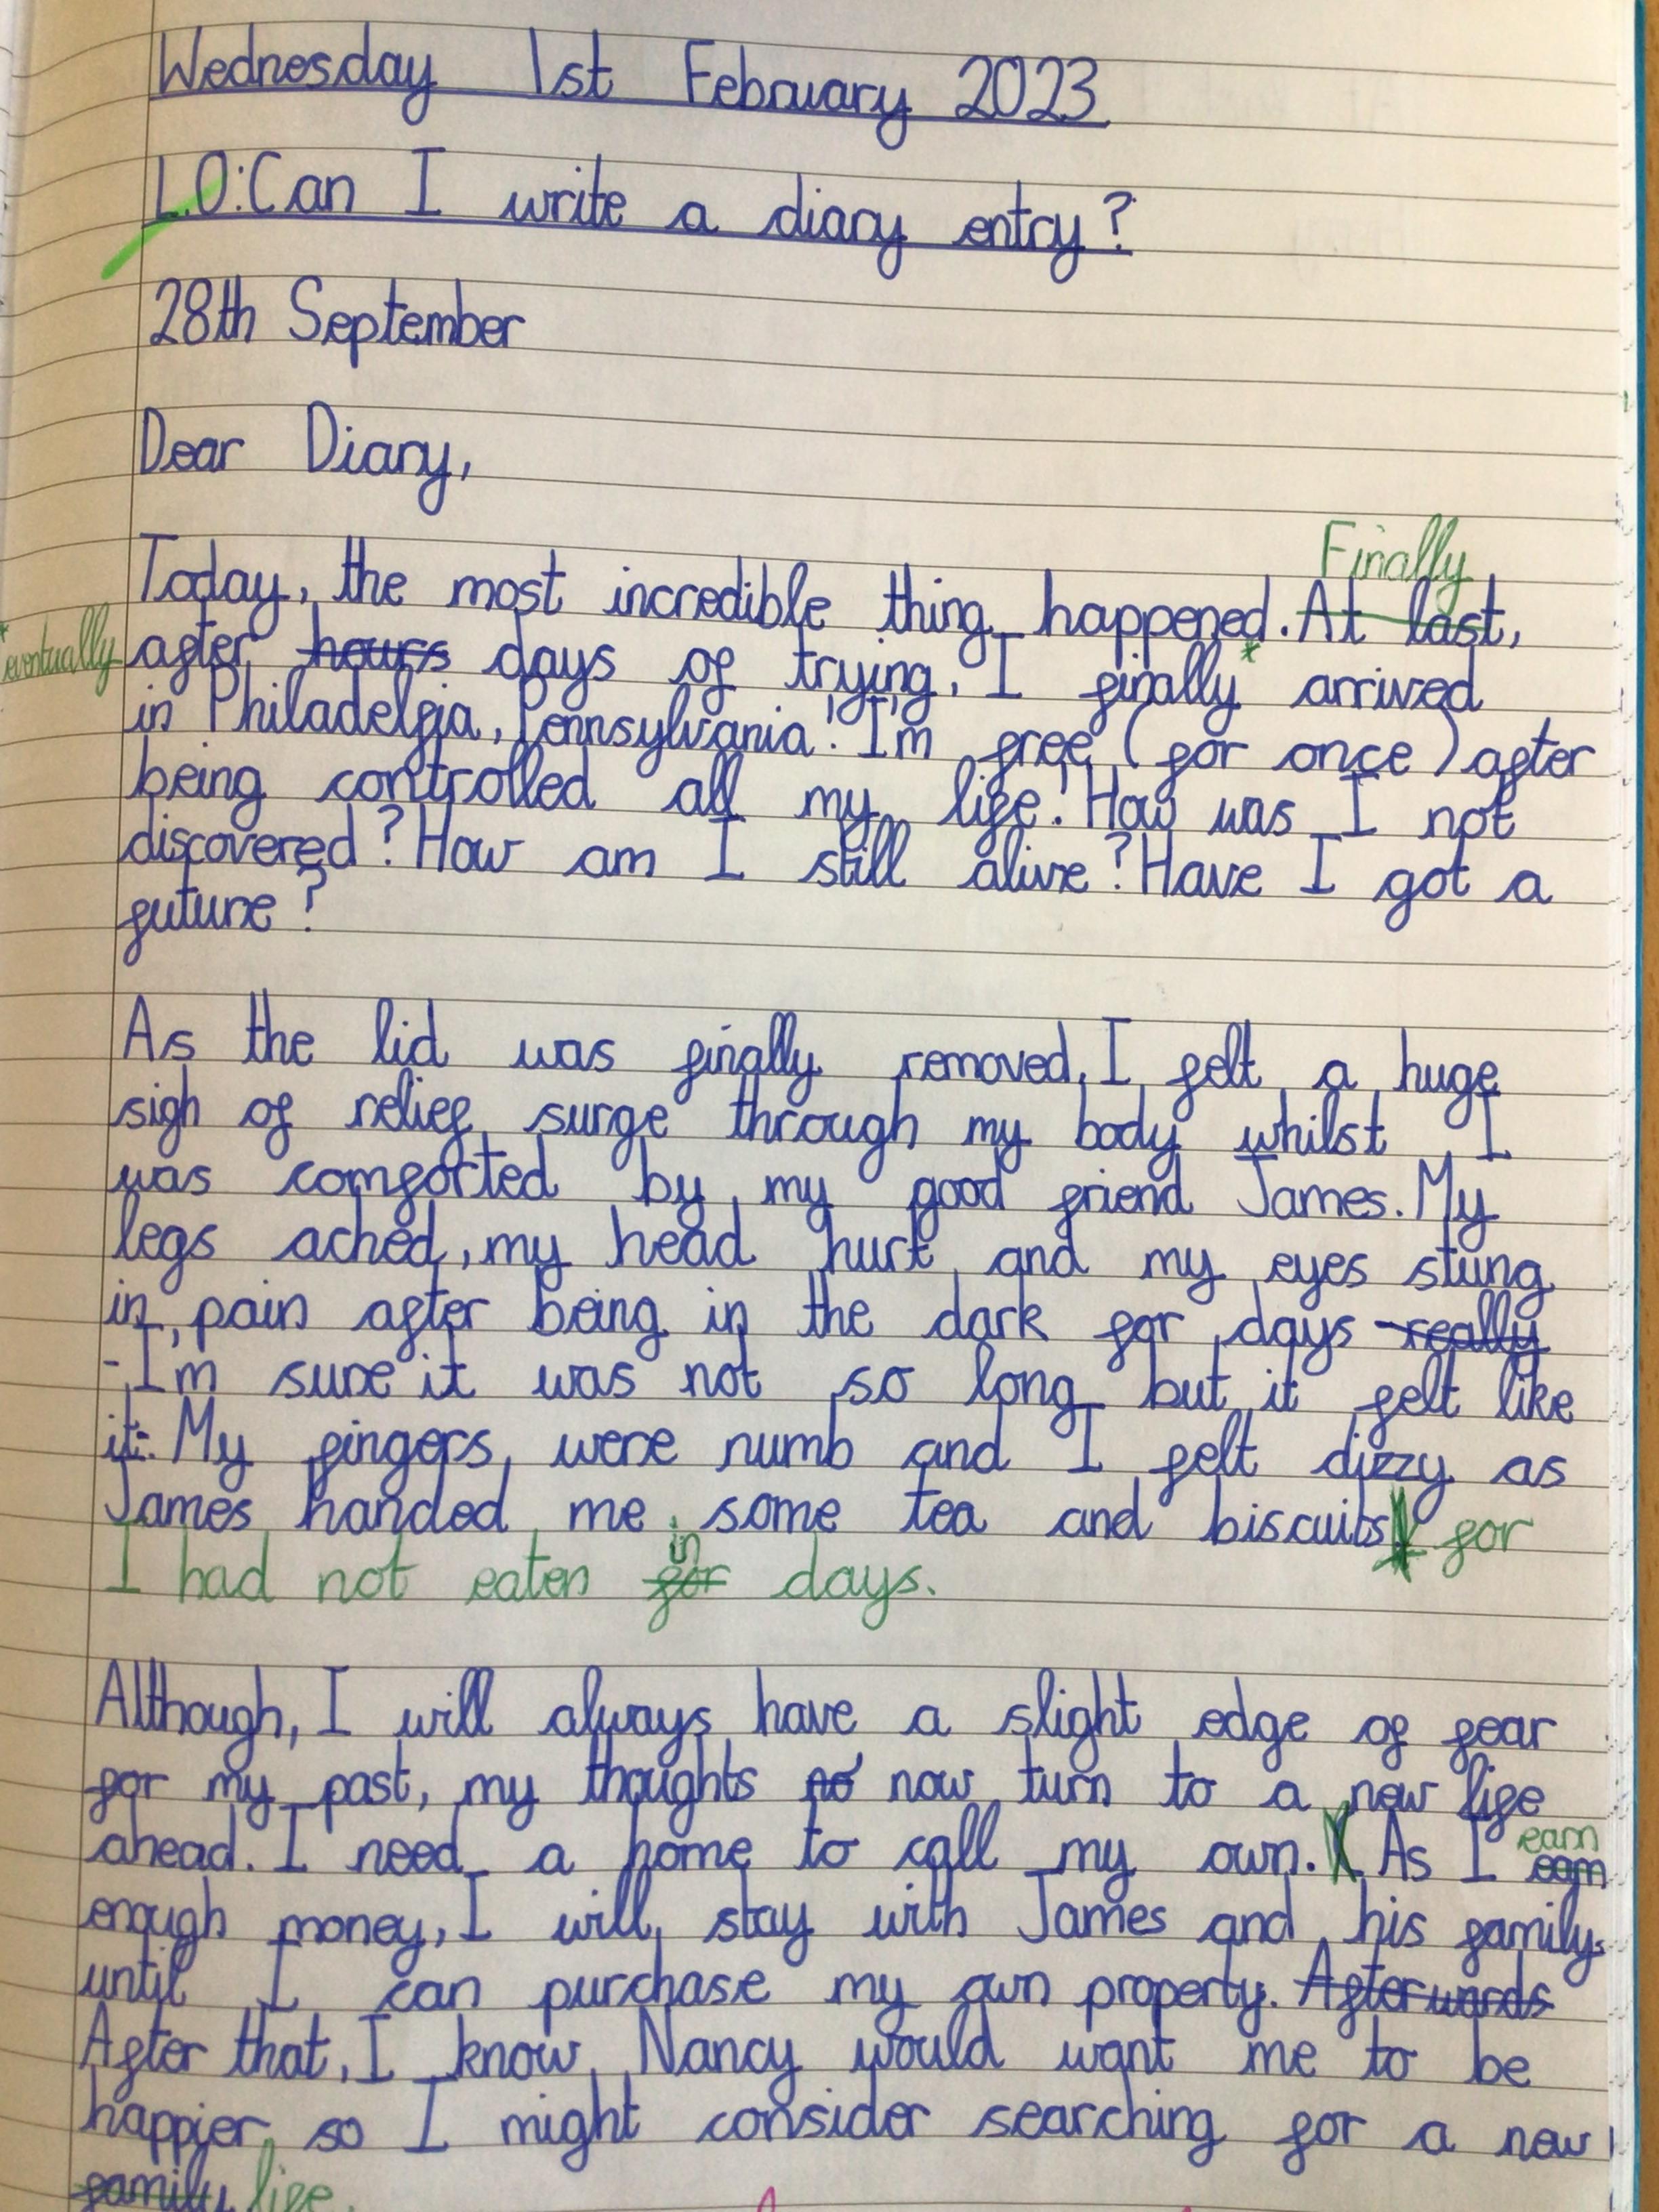 Wednesday 1st February 2023
L.O: Can I write a diary entry?
28th September
Dear Diary,
Finally
Today, the most incredible thing happened. At last,
* eventually after hours days of trying, I finally* arrived
in Philadelfia, Pennsylvania! I'm free (for once) after
being controlled all my life! How was I not
discovered? How am I still alive? Have I got a
future?
As the lid was finally removed, I felt a huge
sigh of relief surge through my body whilst I
was comforted by my good friend James. My
legs ached, my head hurt and my eyes stung
in pain after being in the dark for days - really
- I'm sure it was not so long but it felt like
it. My fingers were numb and I felt dizzy as
James handed me some tea and biscuits for
in
I had not eaten for days.
Although, I will always have a slight edge of fear
for my past, my thoughts no now turn to a new life
ahead. I need a home to call my own. As I earn
enough money, I will stay with James and his family
until I can purchase my own property. Afterwards
After that, I know Nancy would want me to be
happier, so I might consider searching for a new
family life.